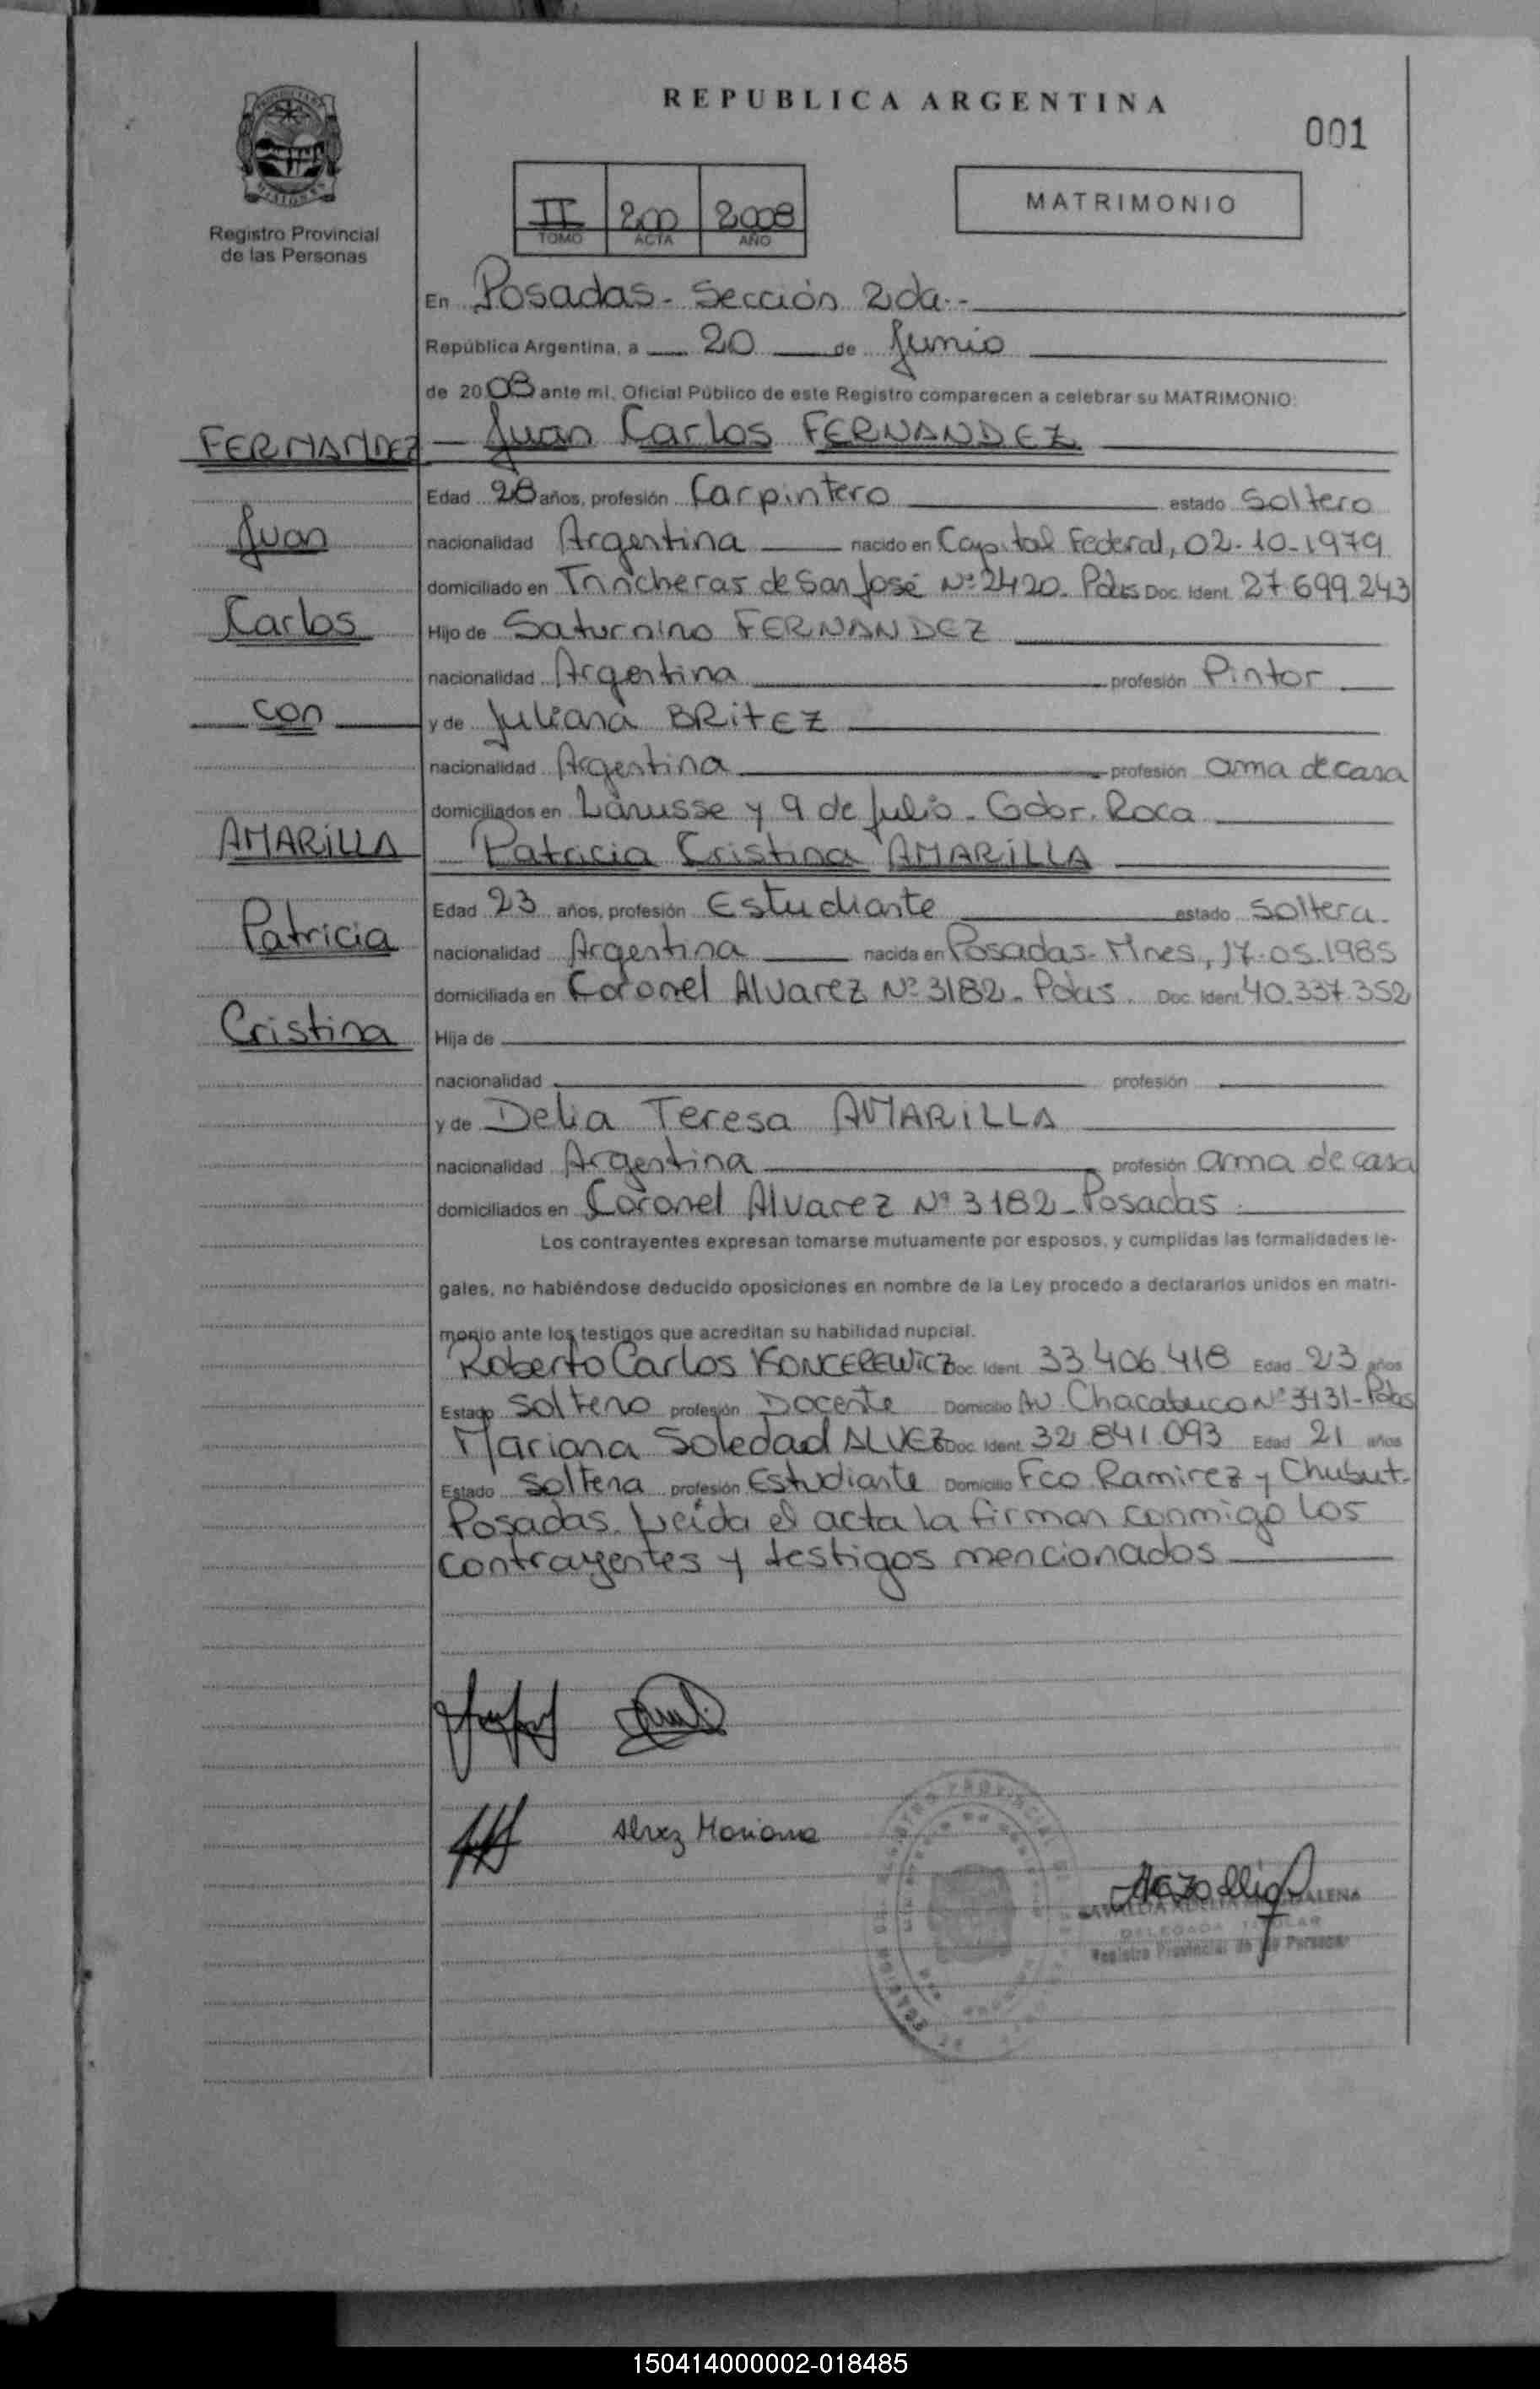 REPUBLICA ARGENTINA
001
Registro Provincial
de las Personas
II 200 2008
TOMO ACTA AÑO
MATRIMONIO
En Posadas - Sección 2da.-
República Argentina, a 20 de Junio
de 2008 ante mi, Oficial Público de este Registro comparecen a celebrar su MATRIMONIO:
FERNANDEZ Juan Carlos FERNANDEZ
Edad 28 años, profesión Carpintero estado Soltero
Juan nacionalidad Argentina nacido en Capital Federal, 02-10-1979
domiciliado en Trincheras de San José Nº 2420. Pdas Doc. Ident. 27.699.243
Carlos Hijo de Saturnino FERNANDEZ
nacionalidad Argentina profesión Pintor
con y de Juliana BRITEZ
nacionalidad Argentina profesión ama de casa
domiciliados en Lanusse y 9 de Julio - Gdor. Roca
AMARILLA Patricia Cristina AMARILLA
Edad 23 años, profesión Estudiante estado Soltera.
Patricia nacionalidad Argentina nacida en Posadas - Mnes, 17-05-1985
domiciliada en Coronel Alvarez Nº 3182 - Pdas. Doc. Ident. 40.337.352
Cristina Hija de
nacionalidad profesión
y de Delia Teresa AMARILLA
nacionalidad Argentina profesión ama de casa
domiciliados en Coronel Alvarez Nº 3182 - Posadas
Los contrayentes expresan tomarse mutuamente por esposos, y cumplidas las formalidades le-
gales, no habiéndose deducido oposiciones en nombre de la Ley procedo a declararlos unidos en matri-
monio ante los testigos que acreditan su habilidad nupcial.
Roberto Carlos KONCEREWICZ Doc. Ident. 33.406.418 Edad 23 años
Estado Soltero profesión Docente Domicilio Av. Chacabuco Nº 3431 - Pdas
Mariana Soledad ALVEZ Doc. Ident. 32.841.093 Edad 21 años
Estado Soltera profesión Estudiante Domicilio Fco. Ramirez y Chubut -
Posadas. Leída el acta la firman conmigo los
contrayentes y testigos mencionados
Alvez Mariana
DELEGADA TITULAR
Registro Provincial de las Personas
150414000002-018485